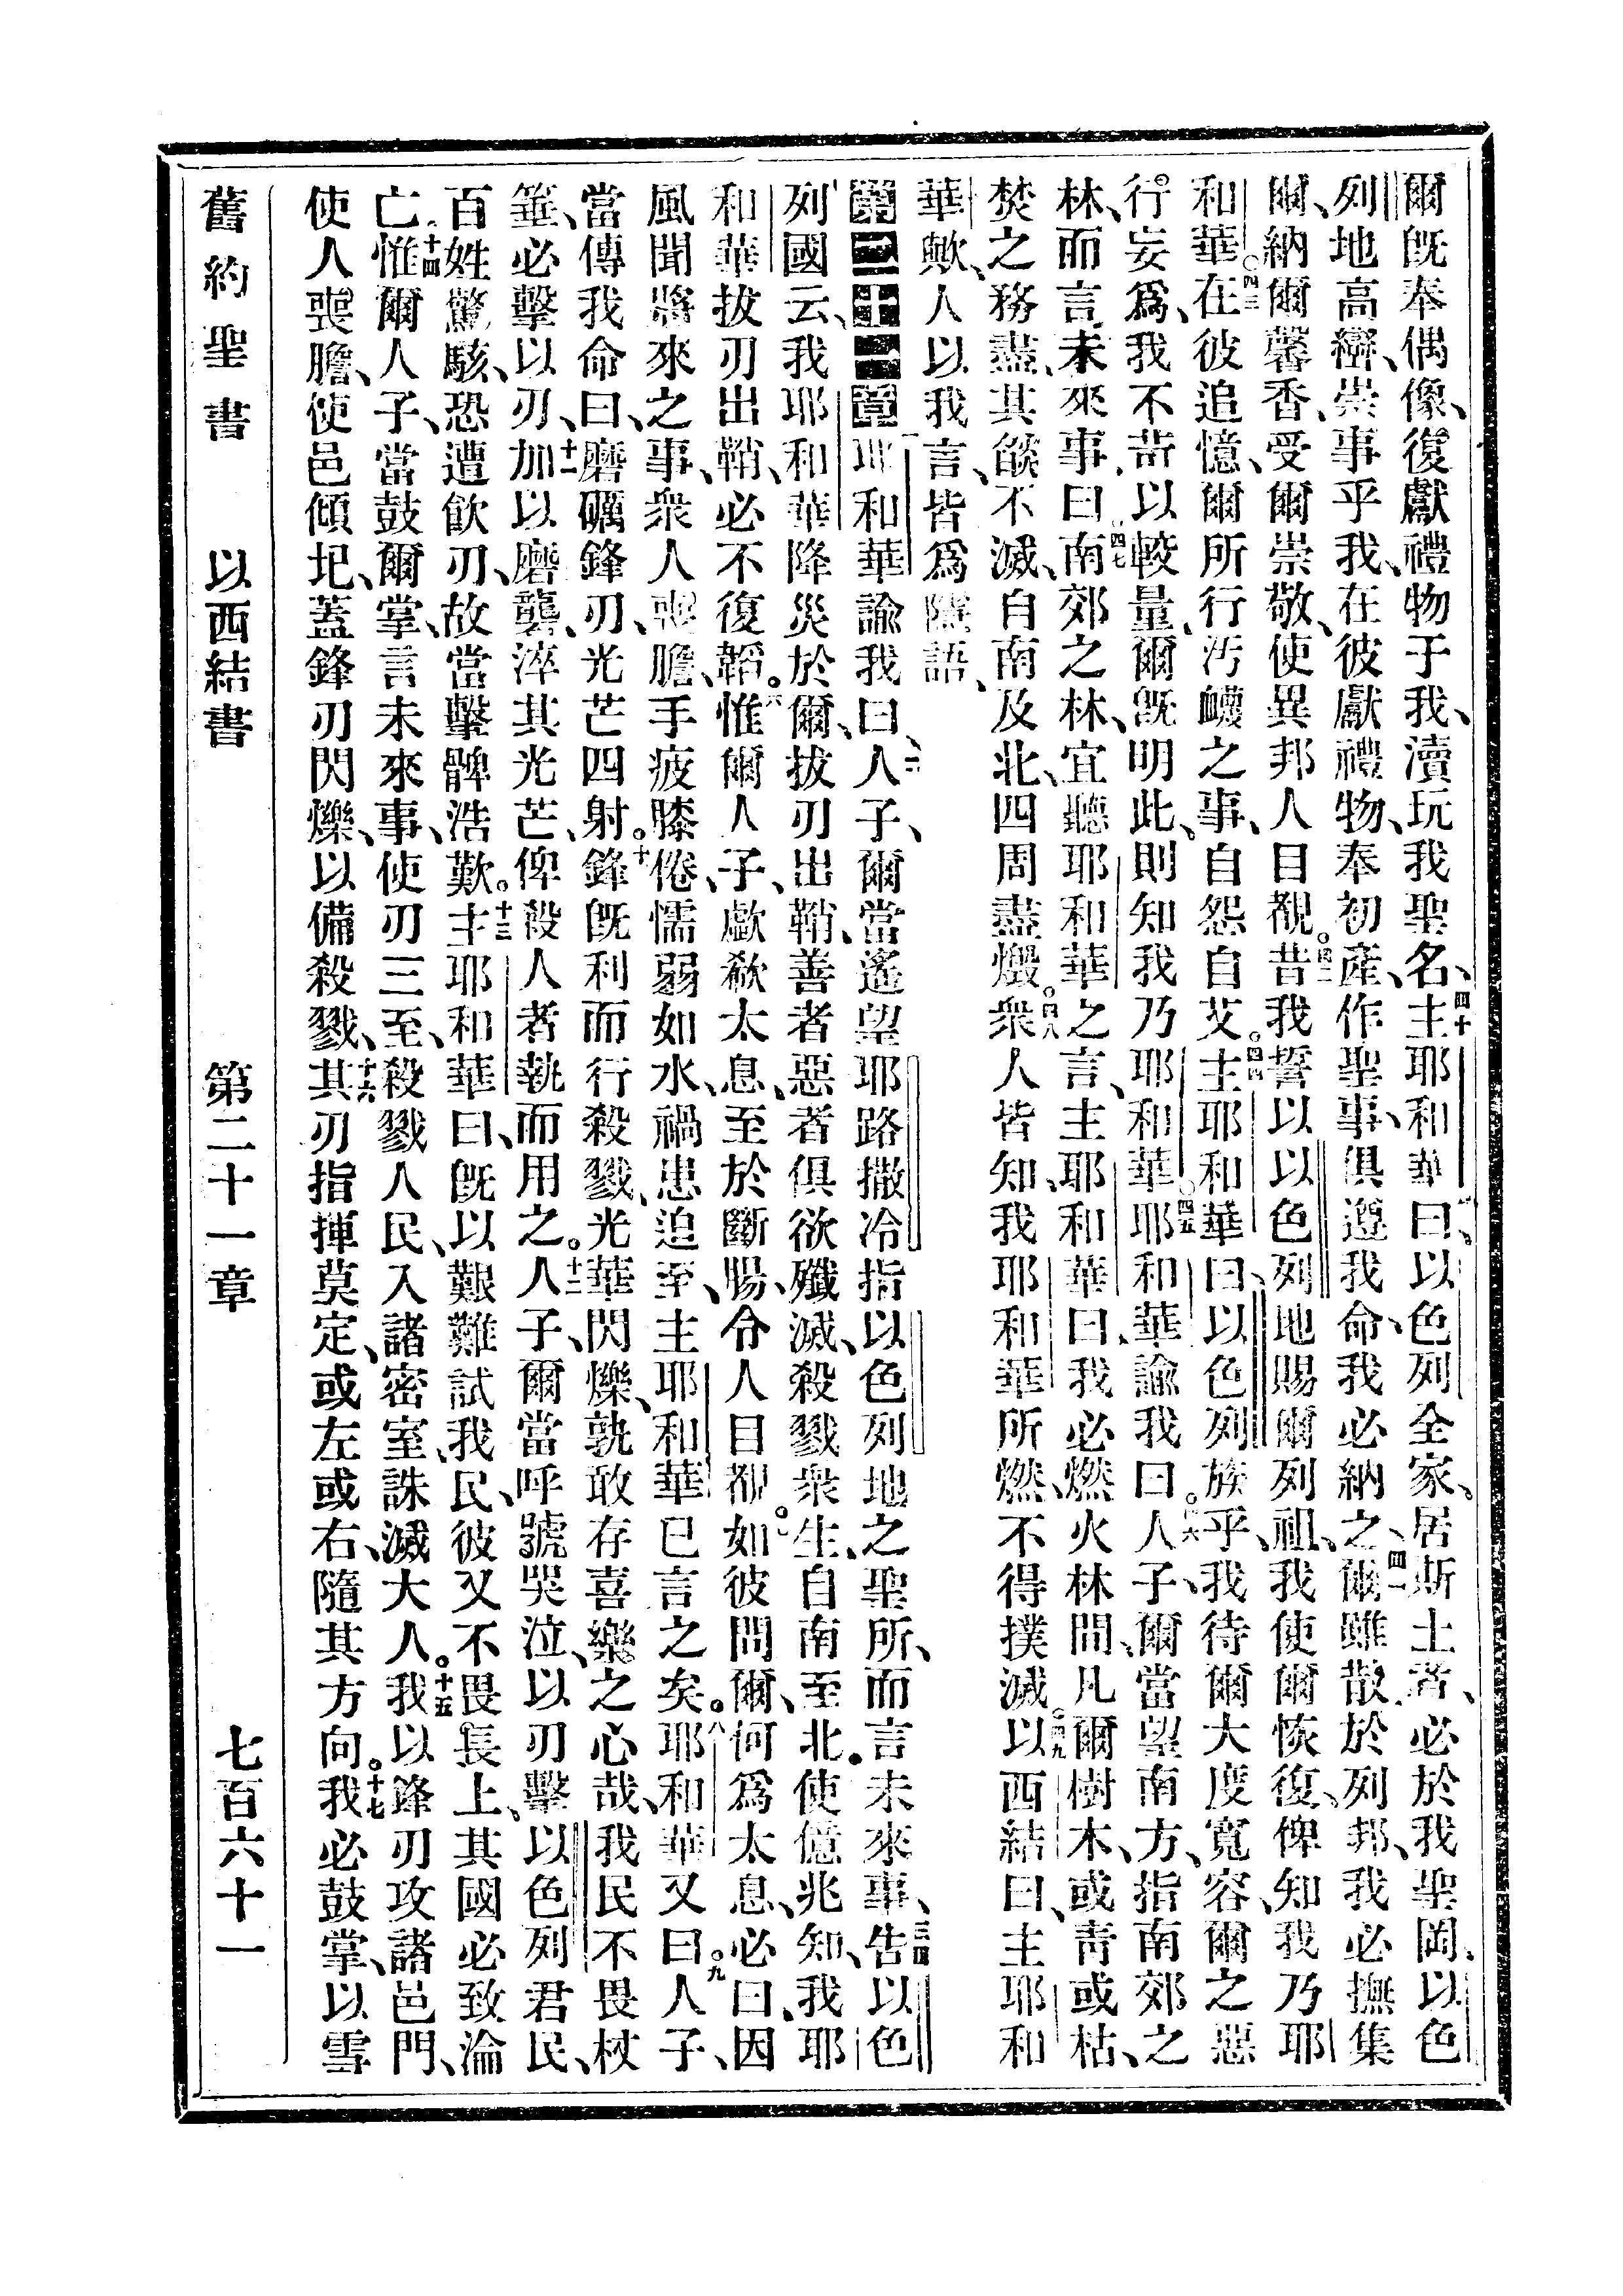 爾旣奉偶像、復獻禮物于我、瀆玩我聖名、四十主耶和華曰、以色列全家、居斯土者、必於我聖岡、以色
列地高巒、崇事乎我、在彼獻禮物、奉初產、作聖事、俱遵我命、我必納之、四一爾雖散於列邦、我必撫集
爾、納爾馨香、受爾崇敬、使異邦人目覩。四二昔我誓以以色列地賜爾列祖、我使爾恢復、俾知我乃耶
和華。四三在彼追憶、爾所行汚衊之事、自怨自艾。四四主耶和華曰、以色列族乎、我待爾大度寬容、爾之惡
行、妄爲、我不苛以較量、爾旣明此、則知我乃耶和華。四五耶和華諭我曰、四六人子、爾當望南方、指南郊之
林、而言未來事、四七曰南郊之林、宜聽耶和華之言、主耶和華曰、我必燃火林間、凡爾樹木、或靑或枯、
焚之務盡、其燄不滅、自南及北、四周盡燬。四八衆人皆知、我耶和華所燃、不得撲滅。四九以西結曰、主耶和
華歟、人以我言、皆爲隱語、
第二十一章耶和華諭我曰、二人子、爾當遙望耶路撒冷、指以色列地之聖所、而言未來事、三四告以色
列國云、我耶和華降災於爾、拔刃出鞘、善者惡者俱欲殲滅、殺戮衆生、自南至北。五使億兆知、我耶
和華拔刃出鞘、必不復韜。六惟爾人子、歔欷太息、至於斷腸、令人目覩。七如彼問爾、何爲太息、必曰、因
風聞將來之事、衆人喪膽、手疲膝倦、懦弱如水、禍患追至、主耶和華已言之矣。八耶和華又曰。九人子、
當傳我命曰、磨礪鋒刃、光芒四射。十鋒旣利而行殺戮、光華閃爍、孰敢存喜樂之心哉、我民不畏杖
箠、必擊以刃、十一加以磨礱、淬其光芒、俾殺人者執而用之。十二人子、爾當呼號哭泣、以刃擊以色列君民、
百姓驚駭、恐遭飮刃、故當擊髀浩歎。十三主耶和華曰、旣以艱難試我民、彼又不畏長上、其國必致淪
亡、十四惟爾人子、當鼓爾掌、言未來事、使刃三至、殺戮人民、入諸密室、誅滅大人。十五我以鋒刃攻諸邑門、
使人喪膽、使邑傾圮、蓋鋒刃閃爍、以備殺戮、十六其刃指揮莫定、或左或右、隨其方向。十七我必鼓掌、以雪
舊約聖書 以西結書 第二十一章 七百六十一